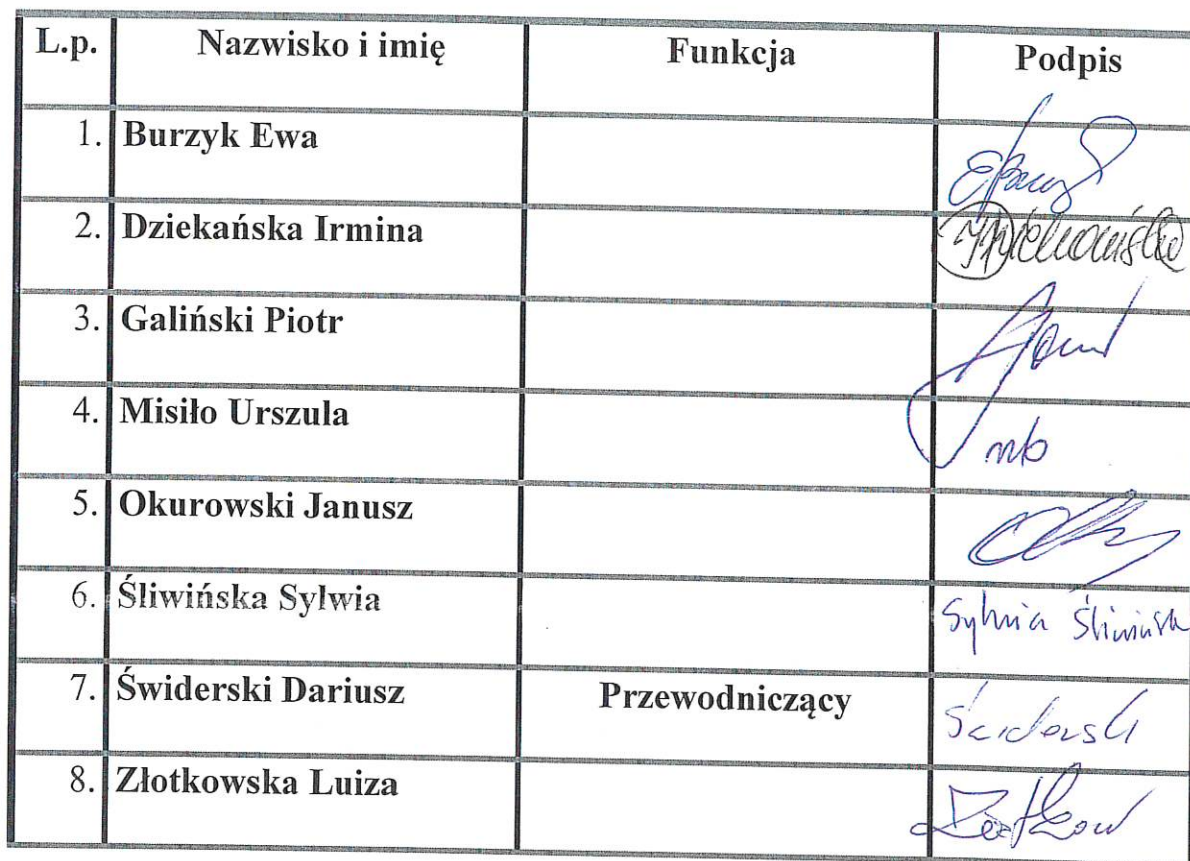 L.p. Nazwisko i imię Funkcja Podpis
1. Burzyk Ewa
2. Dziekańska Irmina
3. Galiński Piotr
4. Misiło Urszula nb
5. Okurowski Janusz
6. Śliwińska Sylwia Sylwia Śliwińsk
7. Świderski Dariusz Przewodniczący
8. Złotkowska Luiza